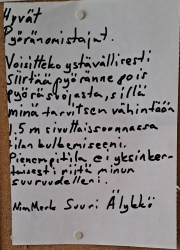 Hyvät
Pyöränomistajat.
Voisitteko ystävällisesti
siirtää pyöränne pois
pyöräsuojasta, sillä
minä tarvitsen vähintään
1.5 m sivuttaissuunnassa
tilan kulkemiseeni.
Pienempi tila ei yksinker-
taisesti riitä minun
suuruudelleni.
NimMerk Suuri Älykkö